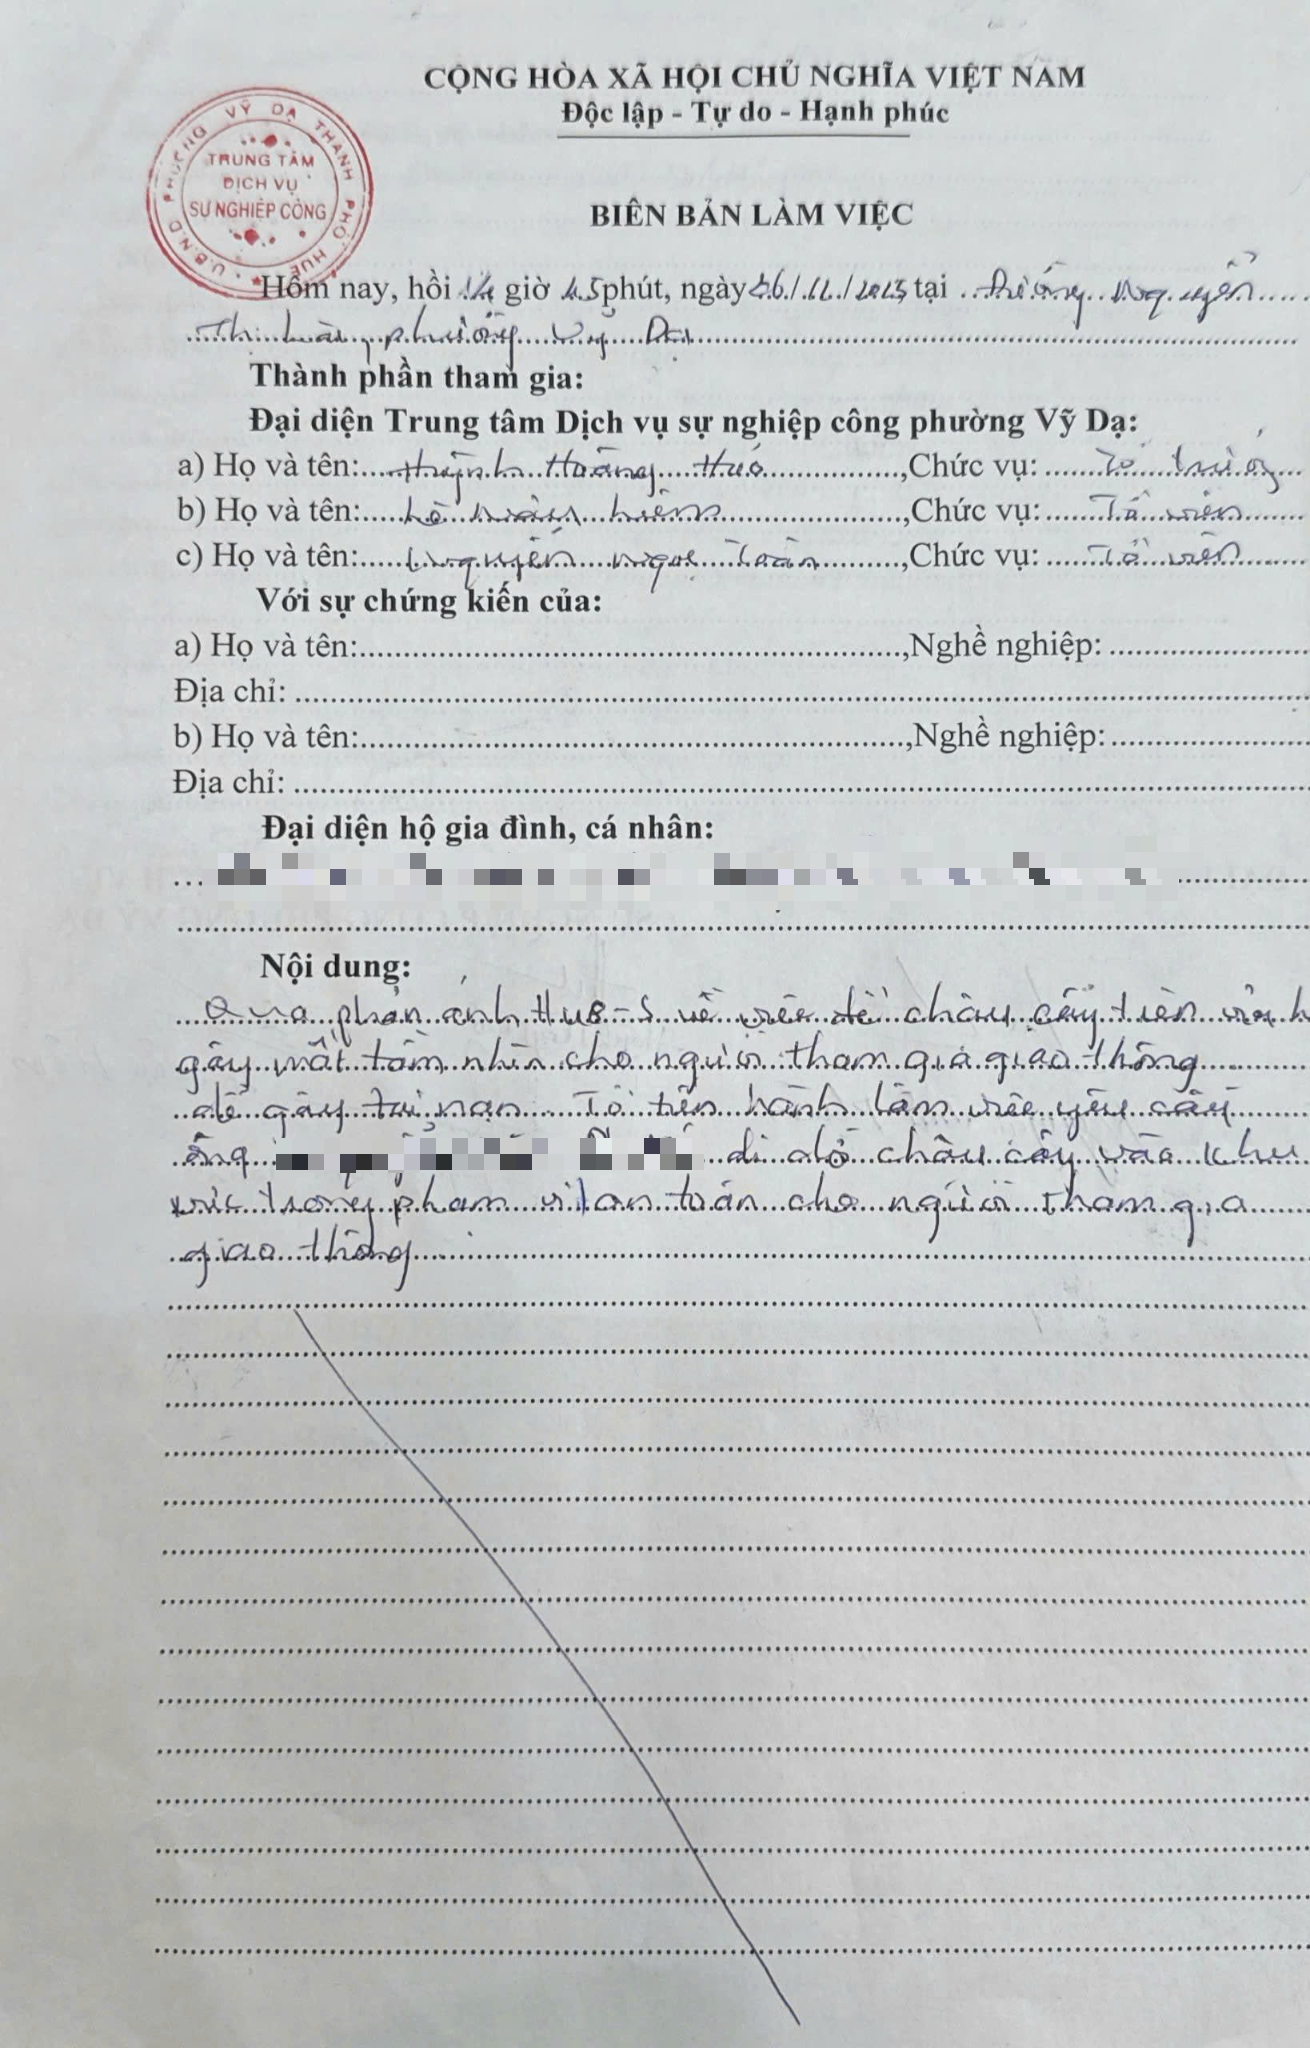 CỘNG HÒA XÃ HỘI CHỦ NGHĨA VIỆT NAM
Độc lập - Tự do - Hạnh phúc
U.B.N.D PHƯỜNG VỸ DẠ THÀNH PHỐ HUẾ
TRUNG TÂM
DỊCH VỤ
SỰ NGHIỆP CÔNG
BIÊN BẢN LÀM VIỆC
Hôm nay, hồi 14 giờ 45 phút, ngày 26/12/2025 tại đường Nguyễn
phường Vỹ Dạ
Thành phần tham gia:
Đại diện Trung tâm Dịch vụ sự nghiệp công phường Vỹ Dạ:
a) Họ và tên: Huỳnh Hoàng ,Chức vụ: Tổ trưởng
b) Họ và tên: ,Chức vụ: Tổ viên
c) Họ và tên: Nguyễn Ngọc Toàn ,Chức vụ: Tổ viên
Với sự chứng kiến của:
a) Họ và tên: ,Nghề nghiệp:
Địa chỉ:
b) Họ và tên: ,Nghề nghiệp:
Địa chỉ:
Đại diện hộ gia đình, cá nhân:
Nội dung:
Qua phản ánh Hue-S về việc để chậu cây trên
gây mất tầm nhìn cho người tham gia giao thông
dễ gây tai nạn Tổ tiến hành làm việc yêu cầu
ông di dời chậu cây vào khu
vực trong phạm vi an toàn cho người tham gia
giao thông